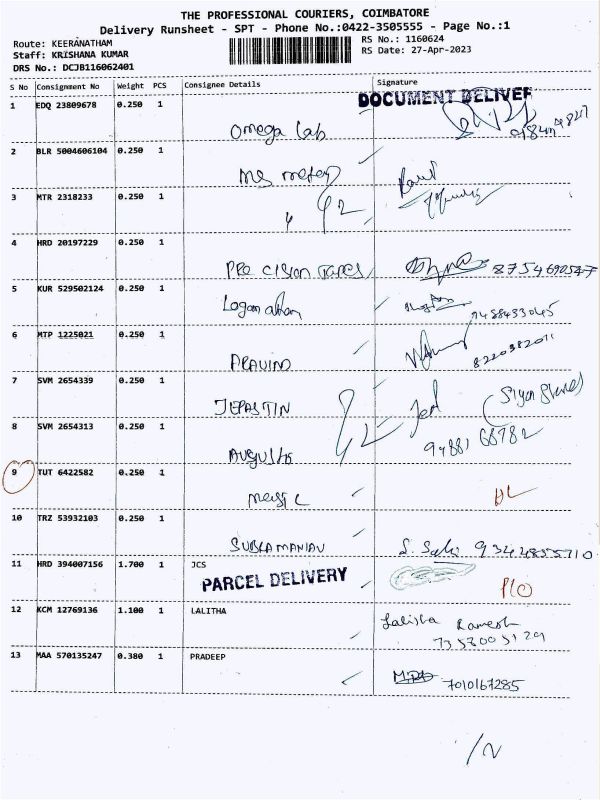 THE PROFESSIONAL COURIERS, COIMBATORE
Delivery Runsheet - SPT - Phone No.:0422-3505555 - Page No.:1
Route: KEERANATHAM
RS No.: 1160624
Staff: KRISHANA KUMAR
RS Date: 27-Apr-2023
DRS No.: DCJB116062401
S No Consignment No Weight PCS Consignee Details Signature
DOCUMENT DELIVER
1 EDQ 23809678 0.250 1
Omega Lab
2 BLR 5004606104 0.250 1
3 MTR 2318233 0.250 1
4 HRD 20197229 0.250 1
PRE CISION TAPES 8754690547
5 KUR 529502124 0.250 1
Loganathan 9488433045
6 MTP 1225021 0.250 1
ARAVIND 8220382071
7 SVM 2654339 0.250 1
JEPASTIN
8 SVM 2654313 0.250 1
94881 68782
9 TUT 6422582 0.250 1
10 TRZ 53932103 0.250 1
SUBRAMANIAN 9344855710
11 HRD 394007156 1.700 1 JCS
PARCEL DELIVERY
12 KCM 12769136 1.100 1 LALITHA
Lalitha Ramesh
7358005129
13 MAA 570135247 0.380 1 PRADEEP
7010167285